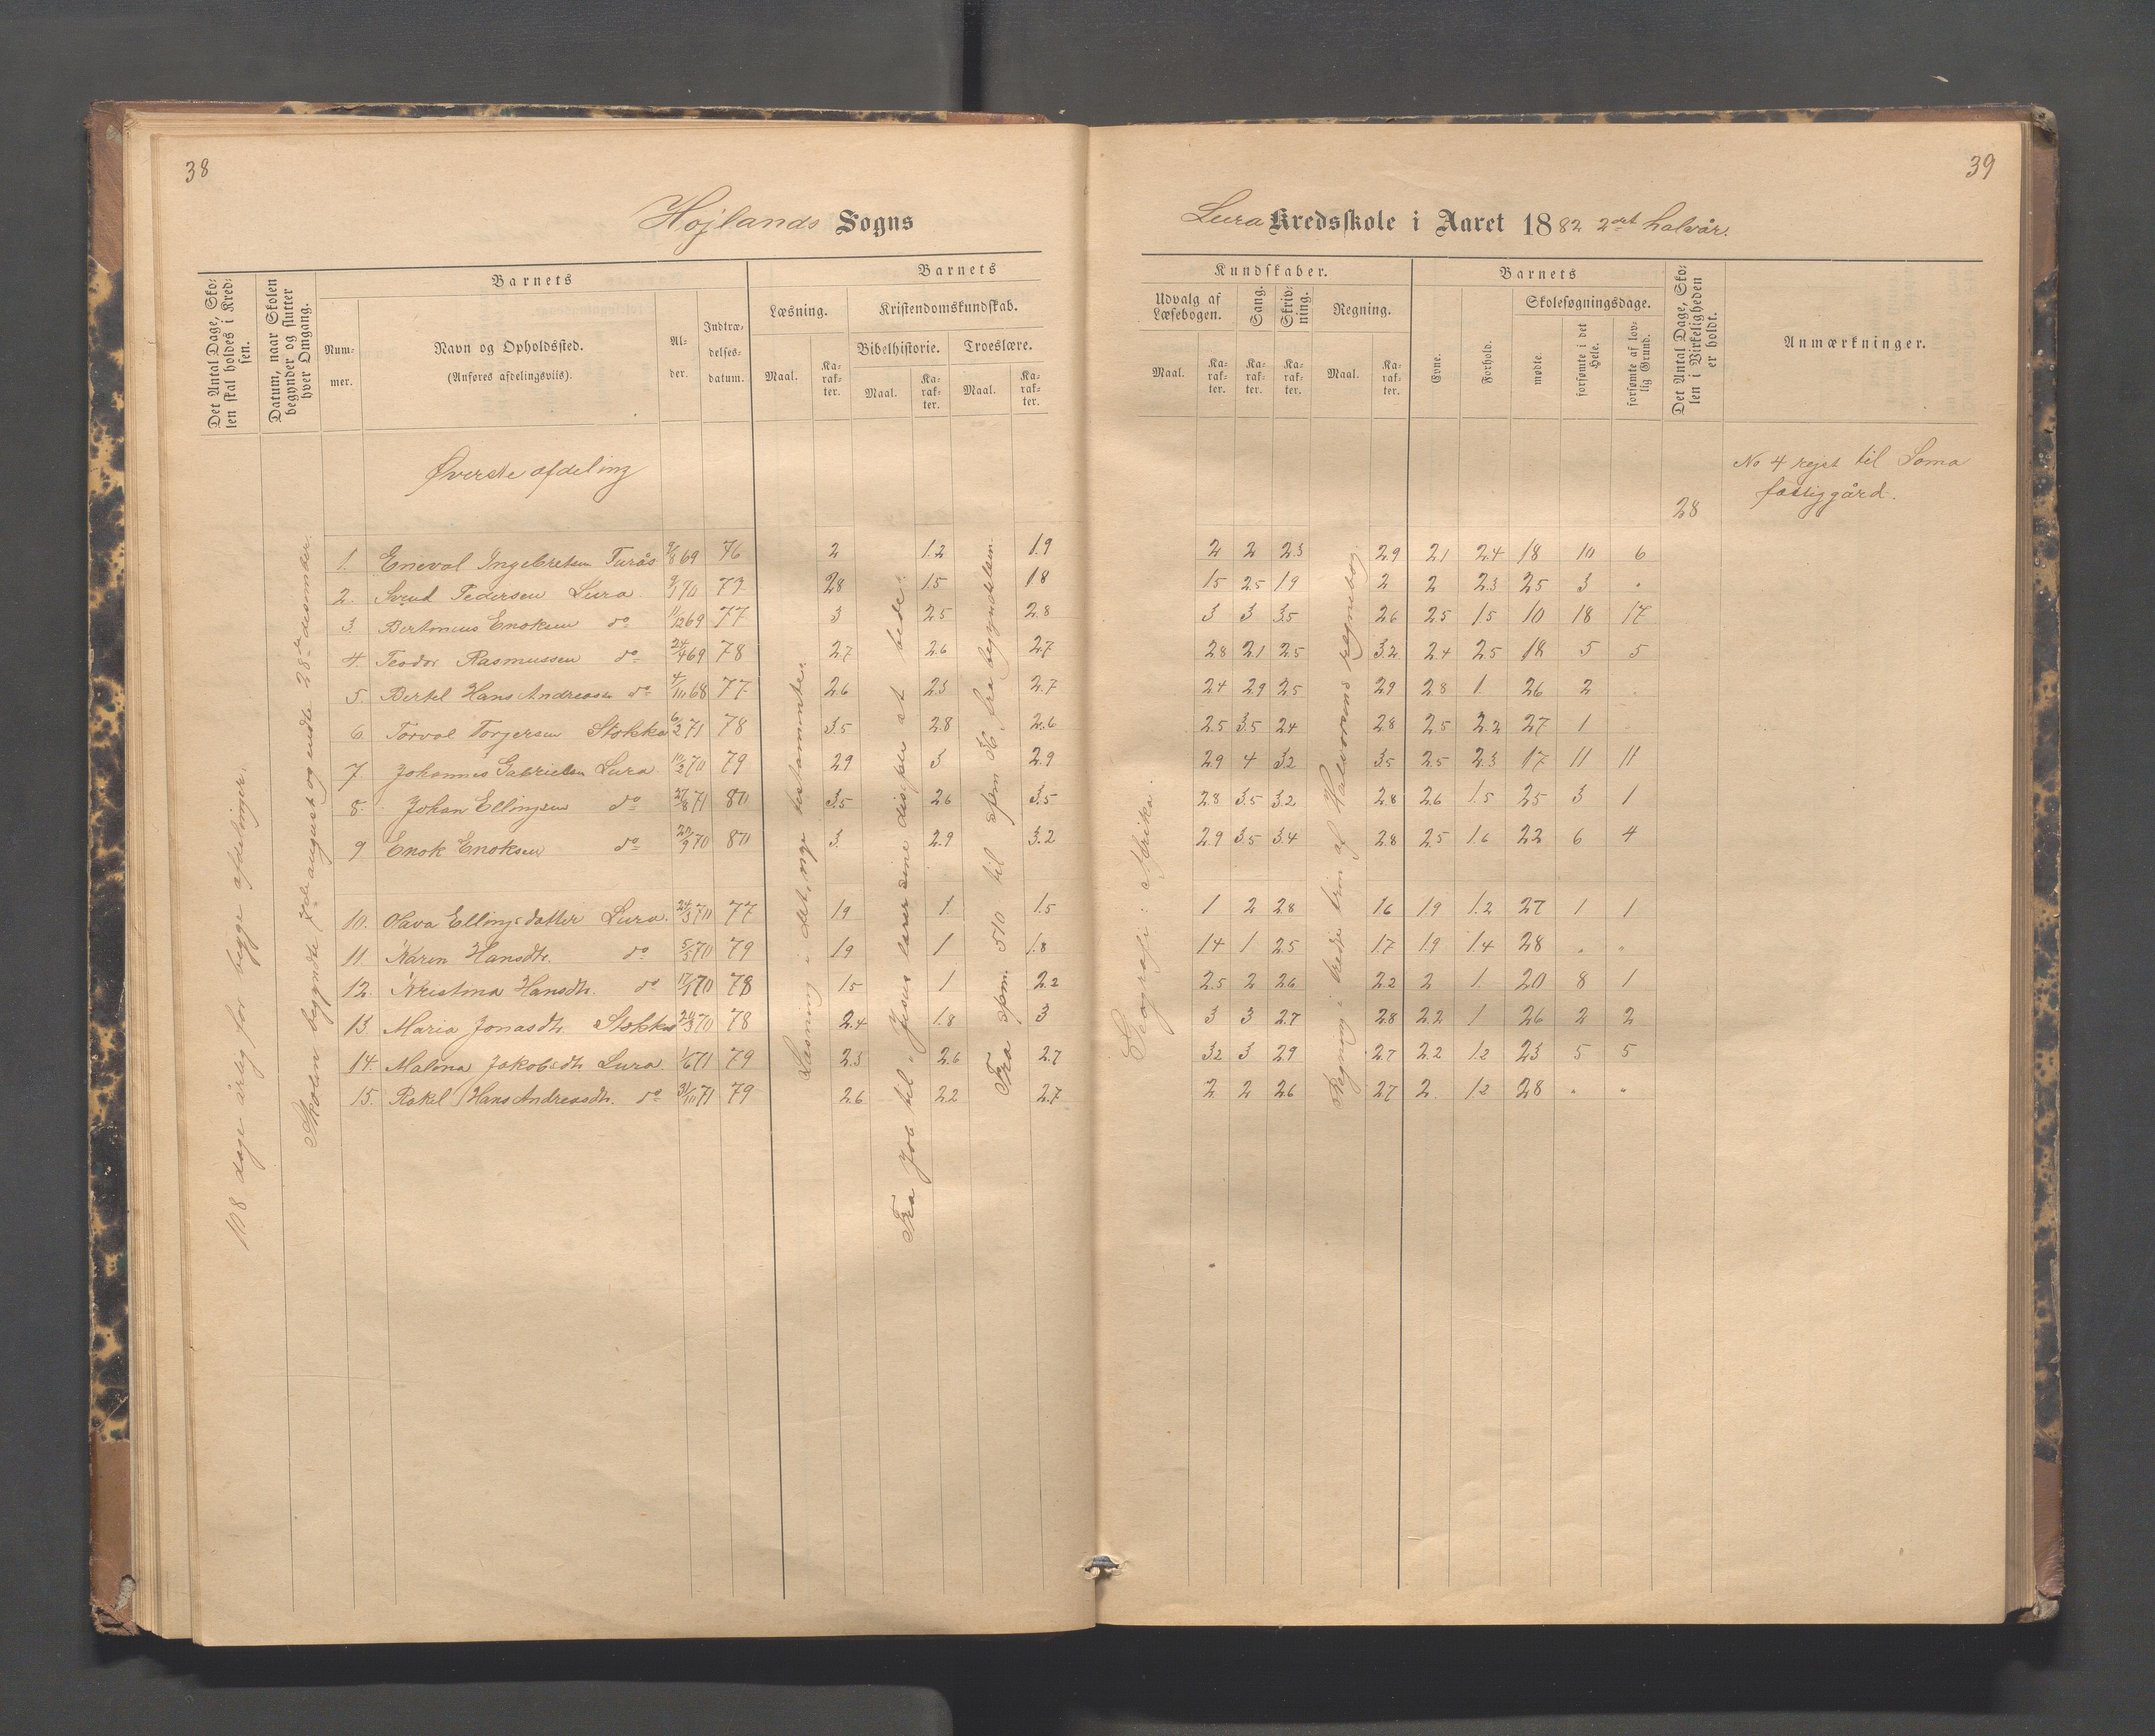 38
Højlands Sogns
Det Antal Dage, Skolen skal holdes i Kredsen.
Datum, naar Skolen begynder og slutter hver Omgang.
Barnets
Nummer.
Navn og Opholdssted.
(Anføres afdelingsviis).
Alder.
Indtrædelsesdatum.
Barnets
Læsning.
Kristendomskundskab.
Bibelhistorie.
Troeslære.
Maal.
Karakter.
Maal.
Karakter.
Maal.
Karakter.
Øverste afdeling
1. Enevol Ingebretsen 69 76 2 1.2 1.9
2. Svend Pedersen Lura 70 2.8 1.5 1.8
3. Bertineus Enoksen do 11/12 69 77 3 2.5 2.8
4. Teodor Rasmussen do 24/4 69 78 2.7 2.6 2.7
5. Bertel Hans Andreasen do 4/10 68 77 2.6 2.3 2.7
6. Torval Torgersen Stokka 6/2 71 78 3.5 2.8 2.6
7. Johannes Gabrielsen Lura 10/2 70 79 2.9 3 2.9
8. Johan Ellingsen do 27/8 71 80 3.5 2.6 3.5
9 Enok Enoksen do 70 80 3. 2.9 3.2
10. Olava Ellingsdatter Lura. 24/3 70 77 1.9 1. 1.5
11. Karen Hansdtr. do 5/5 70 79 1.9 1 1.8
12. Kristina Hansdtr. do 70 78 1.5 1 2.2
13. Maria Jonasdtr. Stokka 70 78 2.4 1.8 3
14. Malena Jakobsdtr Lura. 1/6 71 79 2.3 2.6 2.7
15. Rakel Hans Andreasdtr. do 31/10 71 79 2.6 2.2 2.7
108 dage årlig for begge afdelinger.
Skolen begyndte 7de august og endte 28de desember.
Læsning i det nye testamente.
Fra Job til "Jesus lærer sine disiple at bede".
Fra spm. 510 til spm 36 fra begyndelsen.
39
Lura Kredsskole i Aaret 1882 2det halvår.
Kundskaber.
Udvalg af Læsebogen.
Sang.
Skrivning.
Regning.
Maal.
Karakter.
Karakter.
Karakter.
Maal.
Karakter.
Barnets
Evne.
Forhold.
Skolesøgningsdage.
mødte.
forsømte i det Hele.
forsømte af lovlig Grund.
Det Antal Dage, Skolen i Virkeligheden er holdt.
Anmærkninger.
No 4 rejst til Soma
fattiggård.
28
2 2 2.3 2.9 2.1 2.4 18 10 6
1.5 2.5 1.9 2 2 2.3 25 3 "
3 3 3.5 2.6 2.5 1.5 10 18 17
2.8 2.1 2.5 3.2 2.4 2.5 18 5 5
2.4 2.9 2.5 2.9 2.8 1. 26 2 "
2.5 3.5 2.4 2.8 2.5 2.2 27 1 "
2.9 4 3.2 3.5 2.5 2.3 17 11 11
2.8 3.5 3.2 2.8 2.6 1.5 25 3 1
2.9 3.5 3.4 2.8 2.5 1.6 22 6 4
1 2 2.8 1.6 1.9 1.2 27 1 1
1.4 1 2.5 1.7 1.9 1.4 28 " "
2.5 2 2.6 2.2 2 1. 20 8 1
3 3 2.7 2.8 2.2 1 26 2 2
3.2 3 2.9 2.7 2.2 1.2 23 5 5
2 2 2.6 2.7 2. 1.2 28 " "
Geografi: Afrika.
Regning i tredje trin af Halvorsens regnebog.